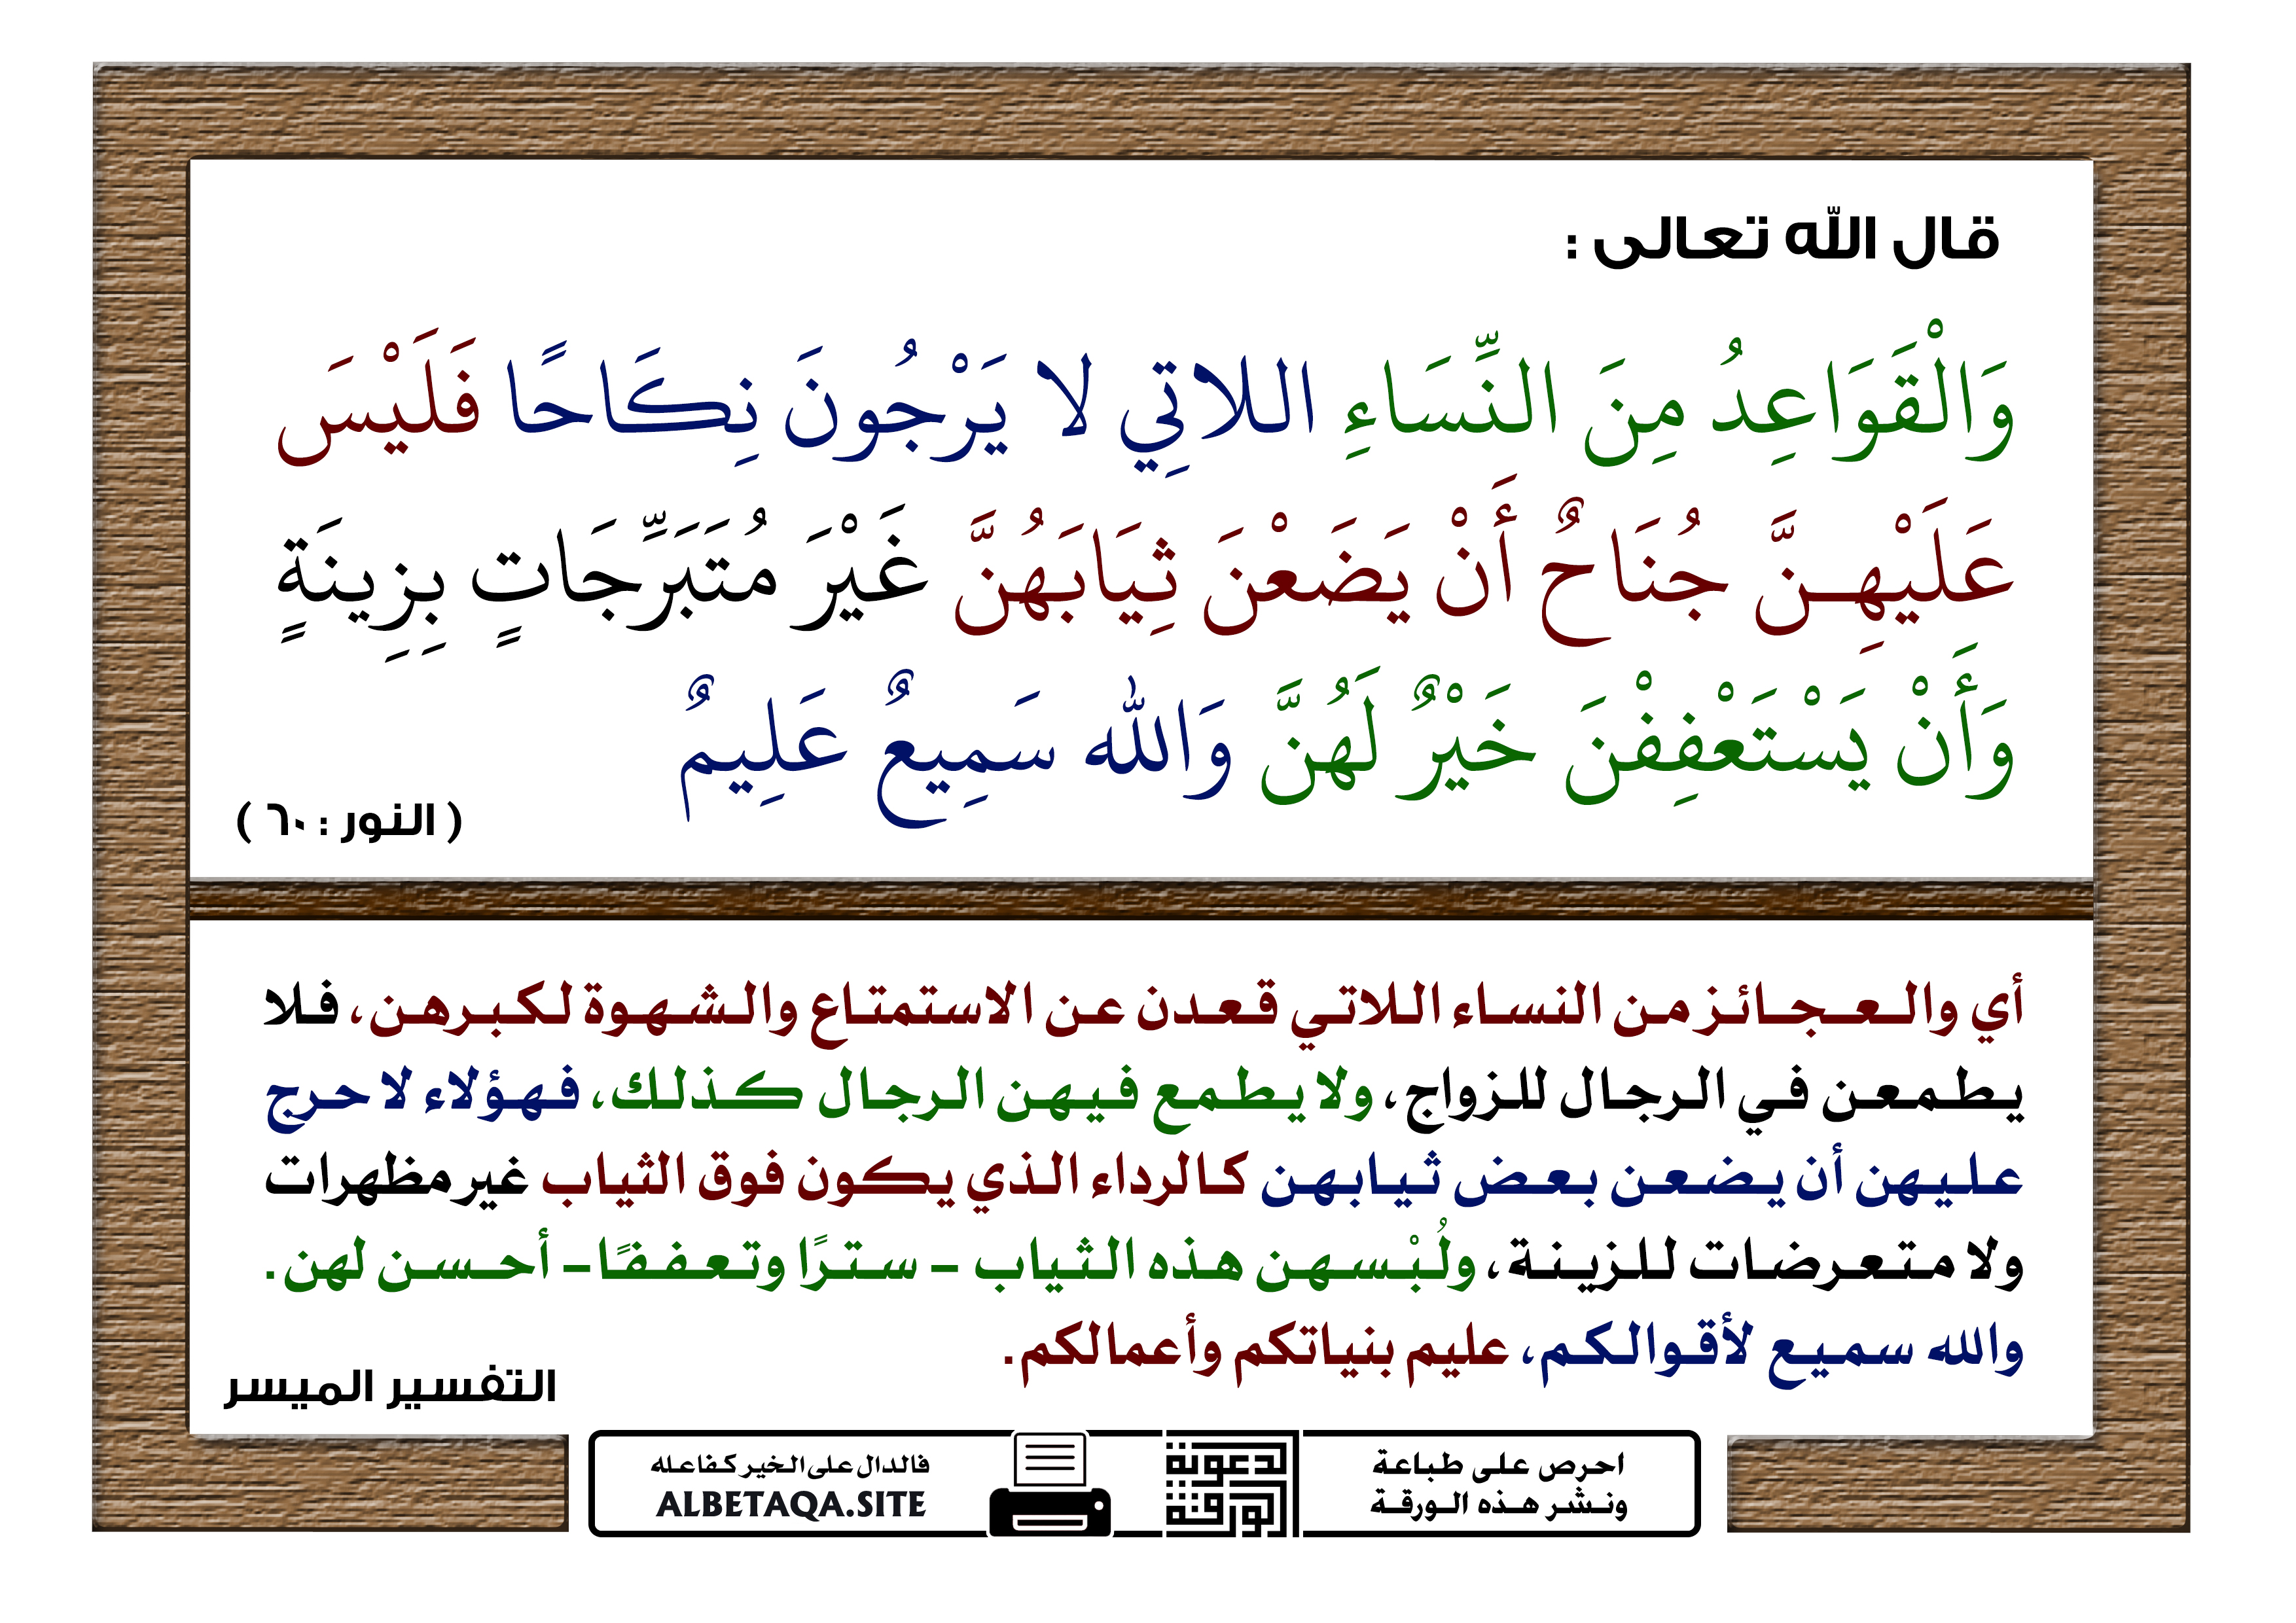 قال الله تعالى :
وَالْقَوَاعِدُ مِنَ النِّسَاءِ اللاتِي لا يَرْجُونَ نِكَاحًا فَلَيْسَ
عَلَيْهِنَّ جُنَاحٌ أَنْ يَضَعْنَ ثِيَابَهُنَّ غَيْرَ مُتَبَرِّجَاتٍ بِزِينَةٍ
وَأَنْ يَسْتَعْفِفْنَ خَيْرٌ لَهُنَّ وَالله سَمِيعٌ عَلِيمٌ
( النور : ٦٠ )
أي والعجائز من النساء اللاتي قعدن عن الاستمتاع والشهوة لكبرهن، فلا
يطمعن في الرجال للزواج، ولا يطمع فيهن الرجال كذلك، فهؤلاء لا حرج
عليهن أن يضعن بعض ثيابهن كالرداء الذي يكون فوق الثياب غير مظهرات
ولا متعرضات للزينة، ولُبْسهن هذه الثياب - سترًا وتعففًا- أحسن لهن.
والله سميع لأقوالكم، عليم بنياتكم وأعمالكم.
التفسير الميسر
احرص على طباعة
ونشر هذه الورقة
الدعوية
الورقة
فالدال على الخير كفاعله
ALBETAQA.SITE